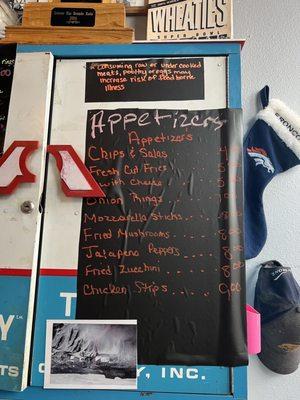 WHEATIES
SUPER BOWL
Consuming raw or under cooked
meats, poultry or eggs may
increase risk of food borne
illness
Appetizers
Appetizers
Chips & Salas
Fresh Cut Fries
with Cheese
Onion Rings
Mozzarella Sticks
Fried Mushrooms 8.00
Jalapeno Peppers 8.00
Fried Zucchini 8.00
Chicken Strips 9.00
BRONCOS
Y, INC.